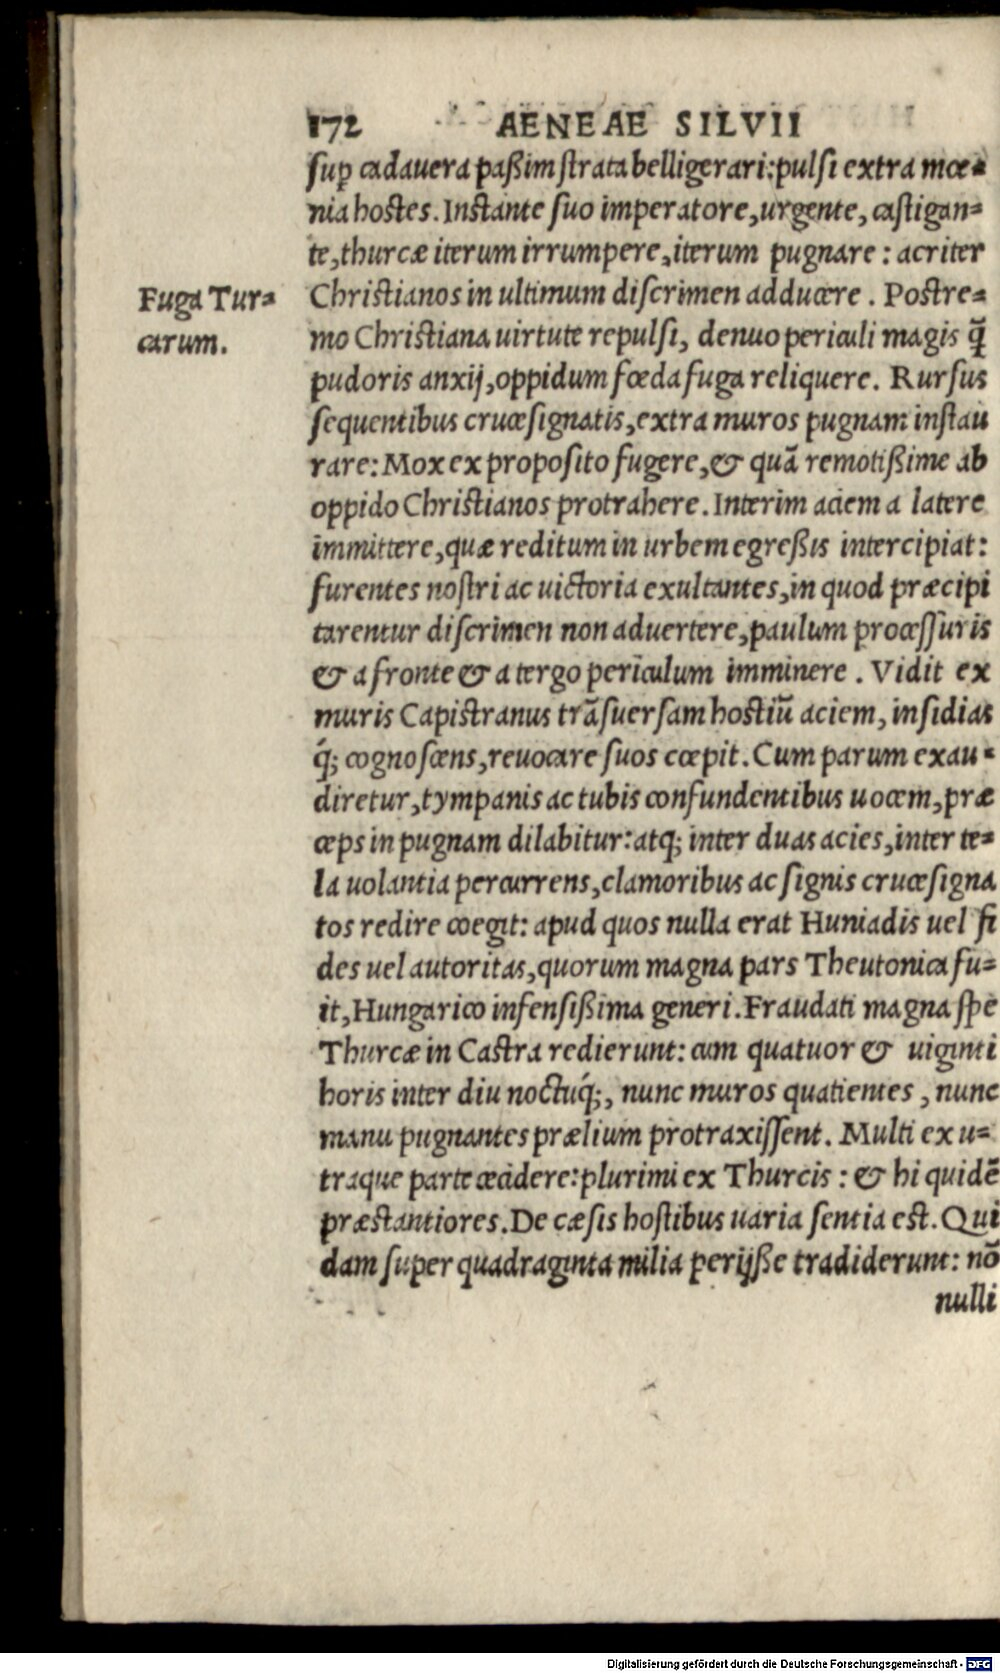 172 AENEAE SILVII
sup̱ cadauera paßim strata belligerari: pulsi extra mœ-
nia hostes. Instante suo imperatore, urgente, castigan-
te, thurcæ iterum irrumpere, iterum pugnare: acriter
Fuga Tur-
carum.
Christianos in ultimum discrimen adducere. Postre-
mo Christiana uirtute repulsi, denuo periculi magis q̃
pudoris anxij, oppidum fœda fuga reliquere. Rursus
sequentibus crucesignatis, extra muros pugnam instau
rare: Mox ex proposito fugere, & quã remotißime ab
oppido Christianos protrahere. Interim aciem a latere
immittere, quæ reditum in urbem egreßis intercipiat:
furentes nostri ac uictoria exultantes, in quod præcipi
tarentur discrimen non aduertere, paulum processuris
& a fronte & a tergo periculum imminere. Vidit ex
muris Capistranus trãsuersam hostiũ aciem, insidias
q́; cognoscens, reuocare suos cœpit. Cum parum exau-
diretur, tympanis ac tubis confundentibus uocem, præ
ceps in pugnam dilabitur: atq; inter duas acies, inter te-
la uolantia percurrens, clamoribus ac signis crucesigna
tos redire coegit: apud quos nulla erat Huniadis uel fi
des uel autoritas, quorum magna pars Theutonica fu-
it, Hungarico infensißima generi. Fraudati magna spe
Thurcæ in Castra redierunt: cum quatuor & uiginti
horis inter diu noctuq́;, nunc muros quatientes, nunc
manu pugnantes prælium protraxissent. Multi ex u-
traque parte cecidere: plurimi ex Thurcis: & hi quidẽ
præstantiores. De cæsis hostibus uaria sentia est. Qui
dam super quadraginta milia perijße tradiderunt: nõ
nulli
Digitalisierung gefördert durch die Deutsche Forschungsgemeinschaft - DFG